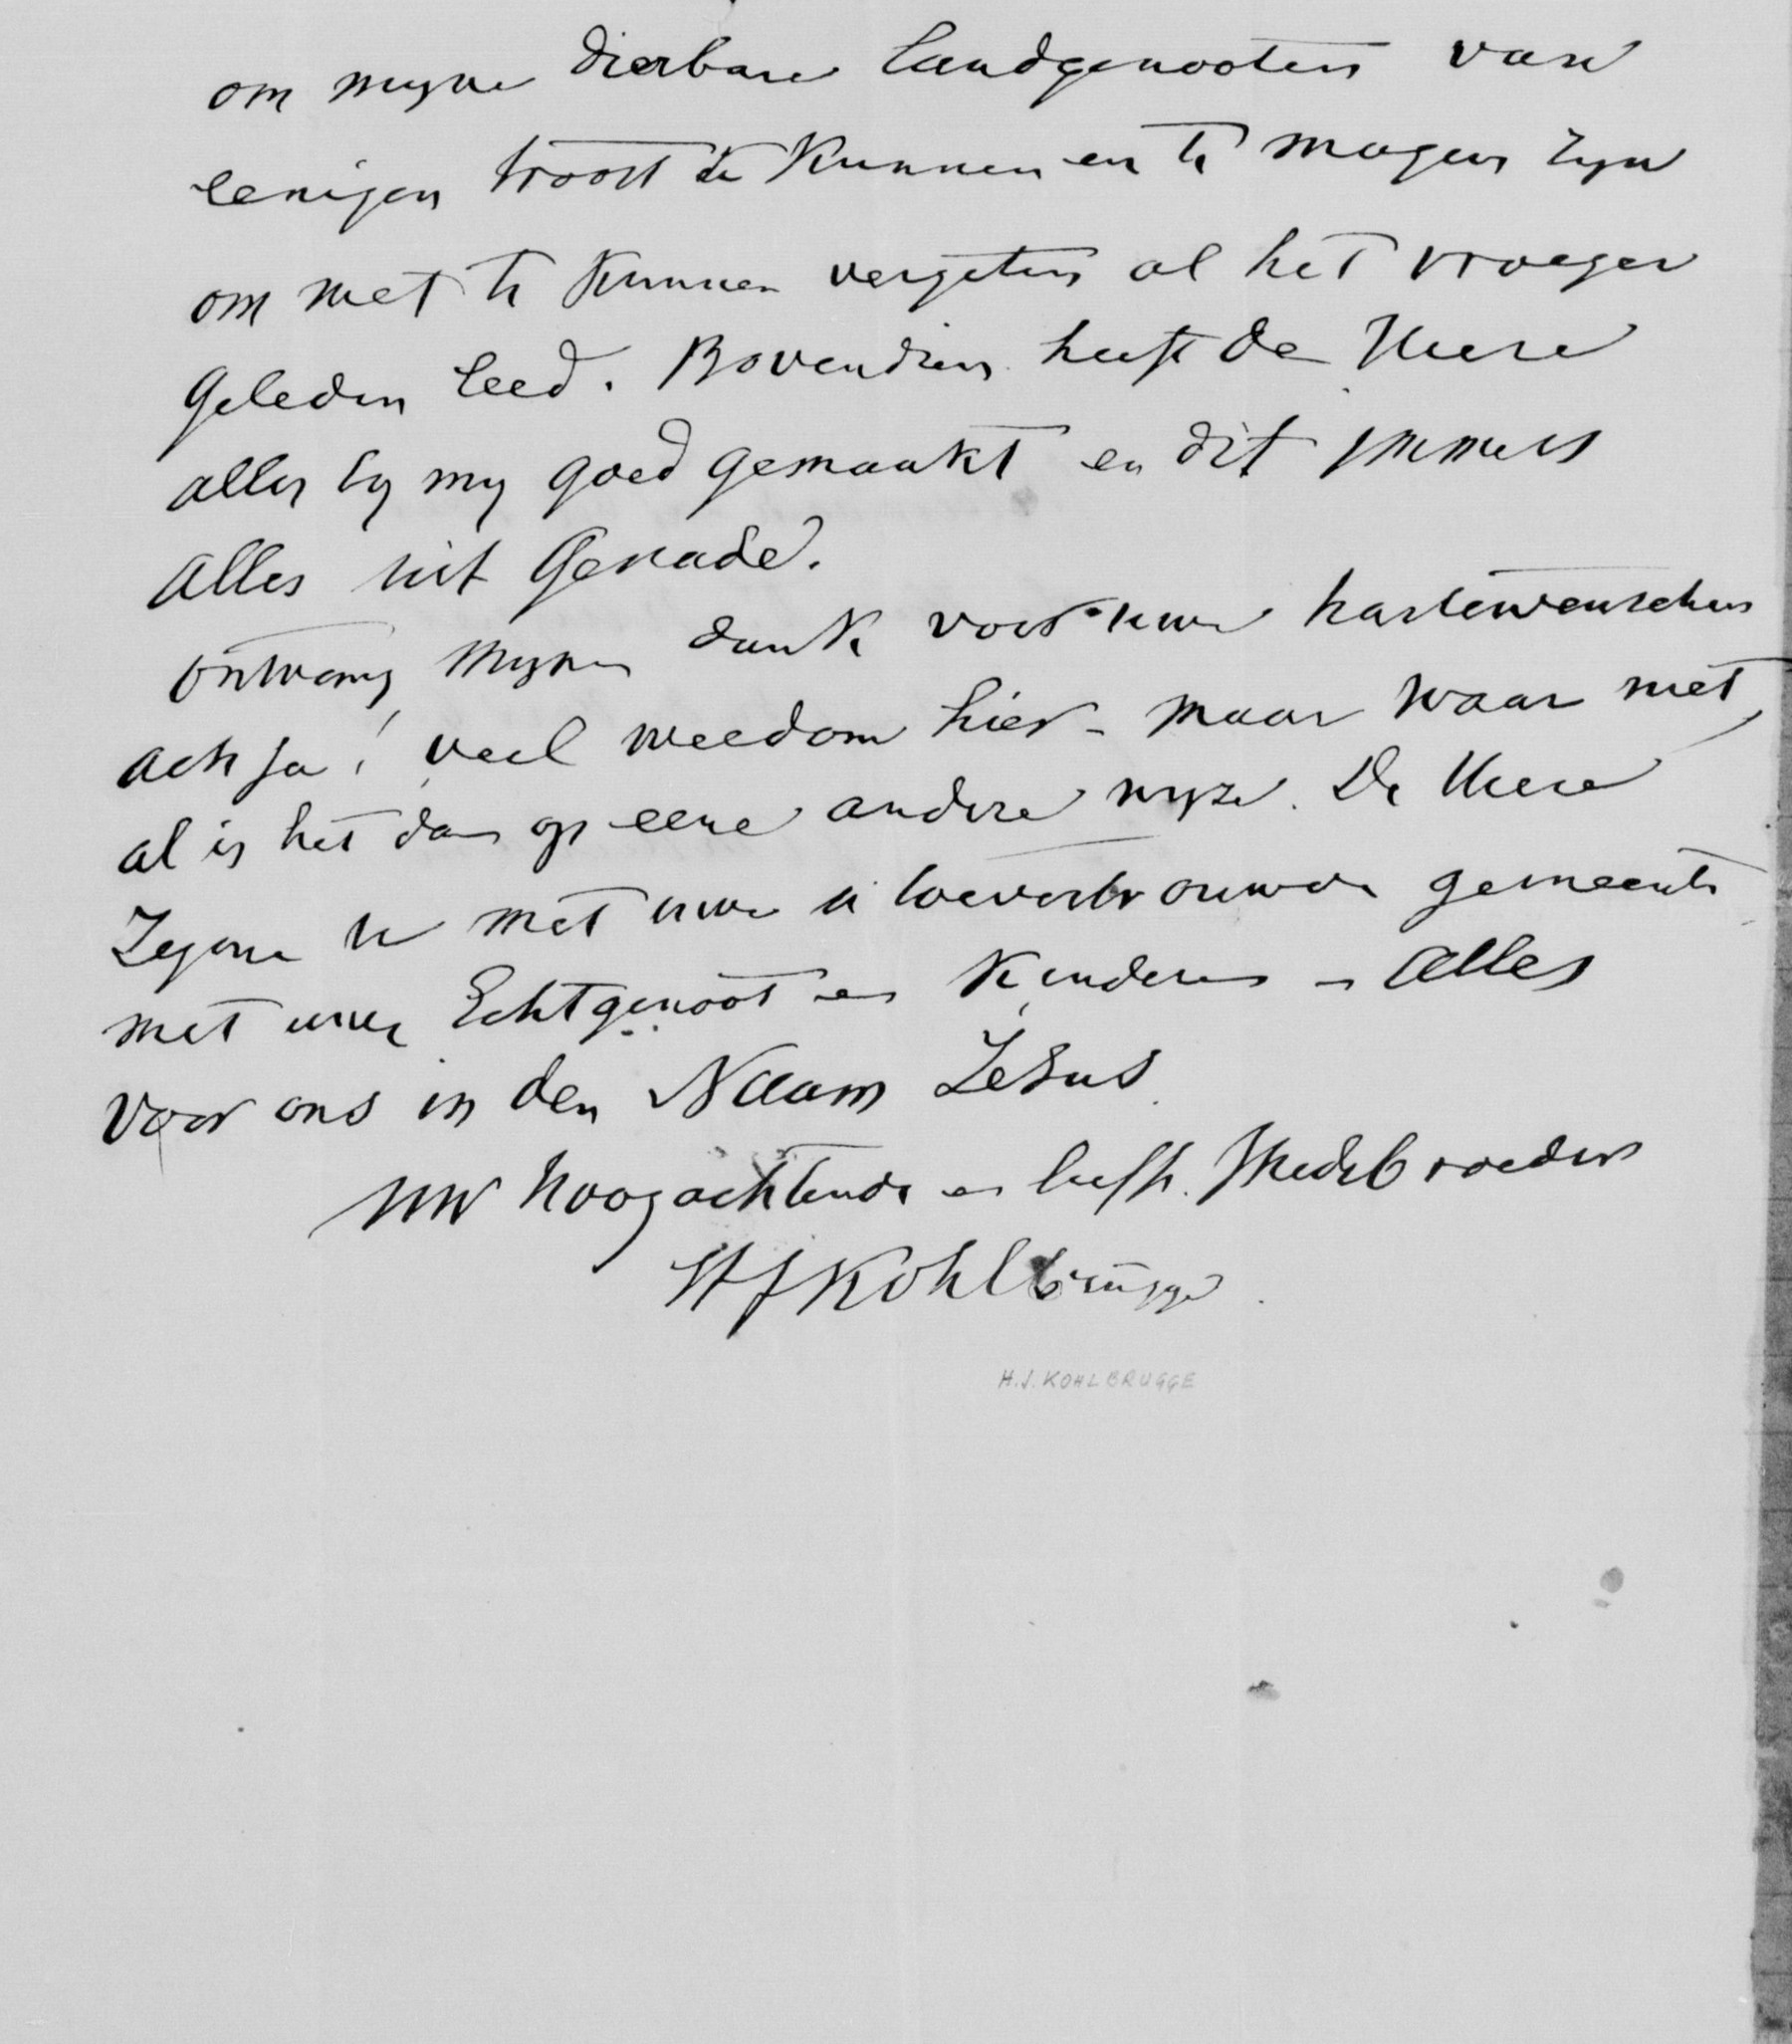 om myne dierbare Landgenooten van
eenigen troost te Kunnen en te mogen zyn
om niet te Kunnen vergeten al het vroeger
geleden leed. Bovendien heeft de Heere
alles by my goed gemaakt en dit immers
alles uit Genade.
Ontvang mynen dank voor uwe hartewenschen
ach ja! veel weedom hier - maar waar niet,
al is het dan op eene andere wyze. De Heere
Zegene U met uwe U toevertrouwde gemeente
met uwe Echtgenoot en Kinderen - alles
voor ons in den Naam Jesus.
UW Hoogachtende en liefh. Medebroeder
HFKohlbrügge
H.J. KOHLBRUGGE